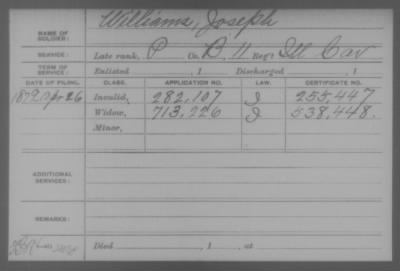 Williams, Joseph
NAME OF SOLDIER:
SERVICE: Late rank, P Co. B, 11 Reg't Ill Cav
TERM OF SERVICE: Enlisted , 1 Discharged , 1
DATE OF FILING. CLASS. APPLICATION NO. LAW. CERTIFICATE NO.
1879 Apr 26 Invalid, 282,107 J 255,447
Widow, 713,226 J 538,448.
Minor,
ADDITIONAL SERVICES:
REMARKS:
Died , 1 , at